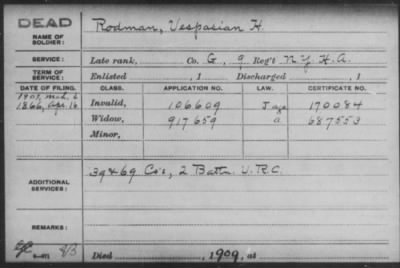 DEAD
NAME OF SOLDIER: Rodman, Vespasian H.
SERVICE: Late rank, Co. G, 9 Reg't N.Y. H.A.
TERM OF SERVICE: Enlisted , 1 Discharged , 1
DATE OF FILING. CLASS. APPLICATION NO. LAW. CERTIFICATE NO.
1866, Apr. 16 Invalid, 106609 170084
Widow, 917659 687553
Minor,
ADDITIONAL SERVICES: 39 & 69 Co's, 2 Batt'n V.R.C.
REMARKS:
Died , 1909, at